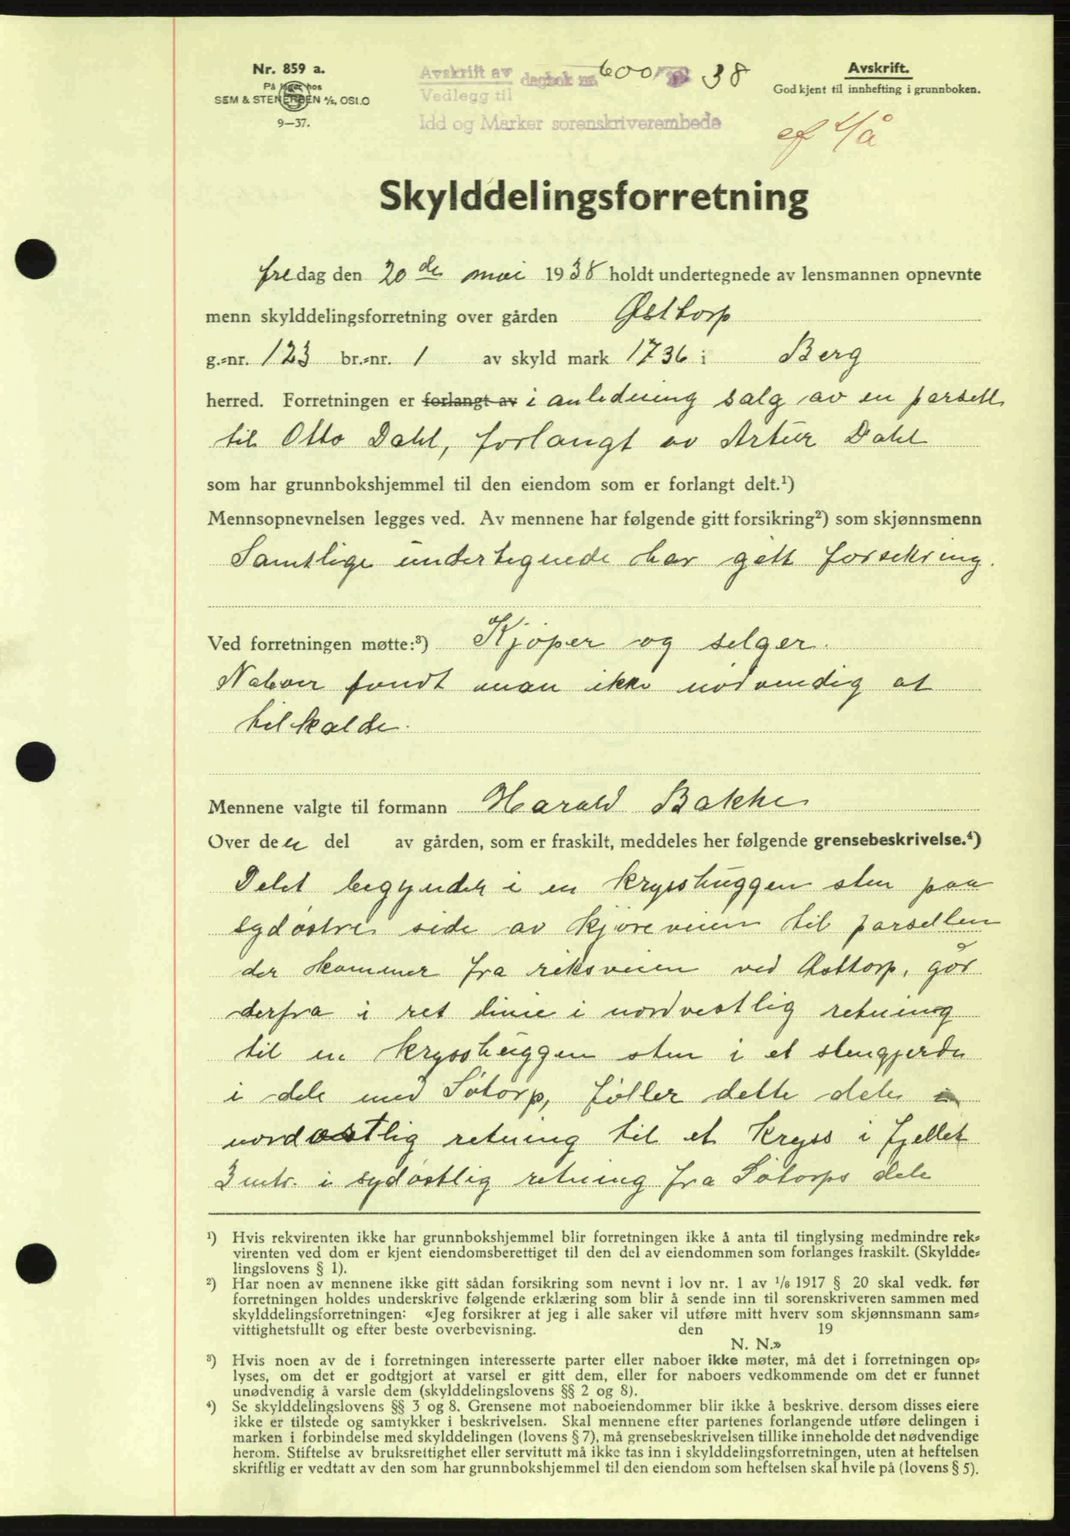 Nr. 859 a.
På lager hos
SEM & STENERSEN A/S, OSLO
9—37.
Avskrift av dagbok nr. 600 38
Vedlegg til
Idd og Marker sorenskriverembede
Avskrift.
God kjent til innhefting i grunnboken.
Skylddelingsforretning
fredag den 20de mai 1938 holdt undertegnede av lensmannen opnevnte
menn skylddelingsforretning over gården Østtorp
g.-nr. 123 br.-nr. 1 av skyld mark 1736 i Berg
herred. Forretningen er forlangt av i anledning salg av en parsell
til Otto Dahl, forlangt av Artur Dahl
som har grunnbokshjemmel til den eiendom som er forlangt delt.¹)
Mennsopnevnelsen legges ved. Av mennene har følgende gitt forsikring²) som skjønnsmenn
Samtlige undertegnede har gitt forsikring.
Ved forretningen møtte:³) Kjøper og selger.
Naboer fandt man ikke nødvendig at
tilkalde.
Mennene valgte til formann Harald Bakke
Over den del av gården, som er fraskilt, meddeles her følgende grensebeskrivelse.⁴)
Delet begynder i en krysshuggen sten paa
sydøstre side av kjøreveien til parsellen
der kommer fra riksveien ved Østtorp, går
derfra i ret linie i nordvestlig retning
til en krysshuggen sten i et stengjerde
i dele med Søtorp, føller dette dele i
nordøstlig retning til et kryss i fjellet
3 mtr. i sydøstlig retning fra Søtorps dele
¹) Hvis rekvirenten ikke har grunnbokshjemmel blir forretningen ikke å anta til tinglysing medmindre rek-
virenten ved dom er kjent eiendomsberettiget til den del av eiendommen som forlanges fraskilt. (Skyldde-
lingslovens § 1).
²) Har noen av mennene ikke gitt sådan forsikring som nevnt i lov nr. 1 av 1/6 1917 § 20 skal vedk. før
forretningen holdes underskrive følgende erklæring som blir å sende inn til sorenskriveren sammen med
skylddelingsforretningen: «Jeg forsikrer at jeg i alle saker vil utføre mitt hverv som skjønnsmann sam-
vittighetsfullt og efter beste overbevisning. den 19
N. N.»
³) Hvis noen av de i forretningen interesserte parter eller naboer ikke møter, må det i forretningen op-
lyses, om det er godtgjort at varsel er gitt dem, eller for naboers vedkommende om det er funnet
unødvendig å varsle dem (skylddelingslovens §§ 2 og 8).
⁴) Se skylddelingslovens §§ 3 og 8. Grensene mot naboeiendommer blir ikke å beskrive, dersom disses eiere
ikke er tilstede og samtykker i beskrivelsen. Skal mennene efter partenes forlangende utføre delingen i
marken i forbindelse med skylddelingen (lovens § 7), må grensebeskrivelsen tillike inneholde det nødvendige
herom. Stiftelse av bruksrettighet eller servitutt må ikke tas inn i skylddelingsforretningen, uten at heftelsen
skriftlig er vedtatt av den som har grunnbokshjemmel til den eiendom som heftelsen skal hvile på (lovens § 5).